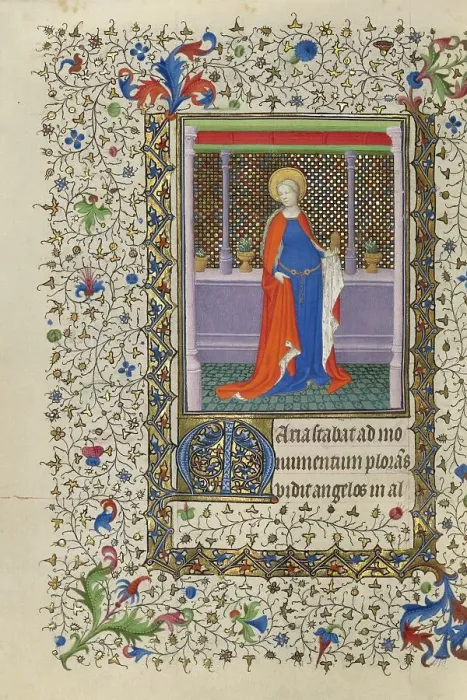 Maria stabat ad mo
numentum plorãs
vidit angelos in al